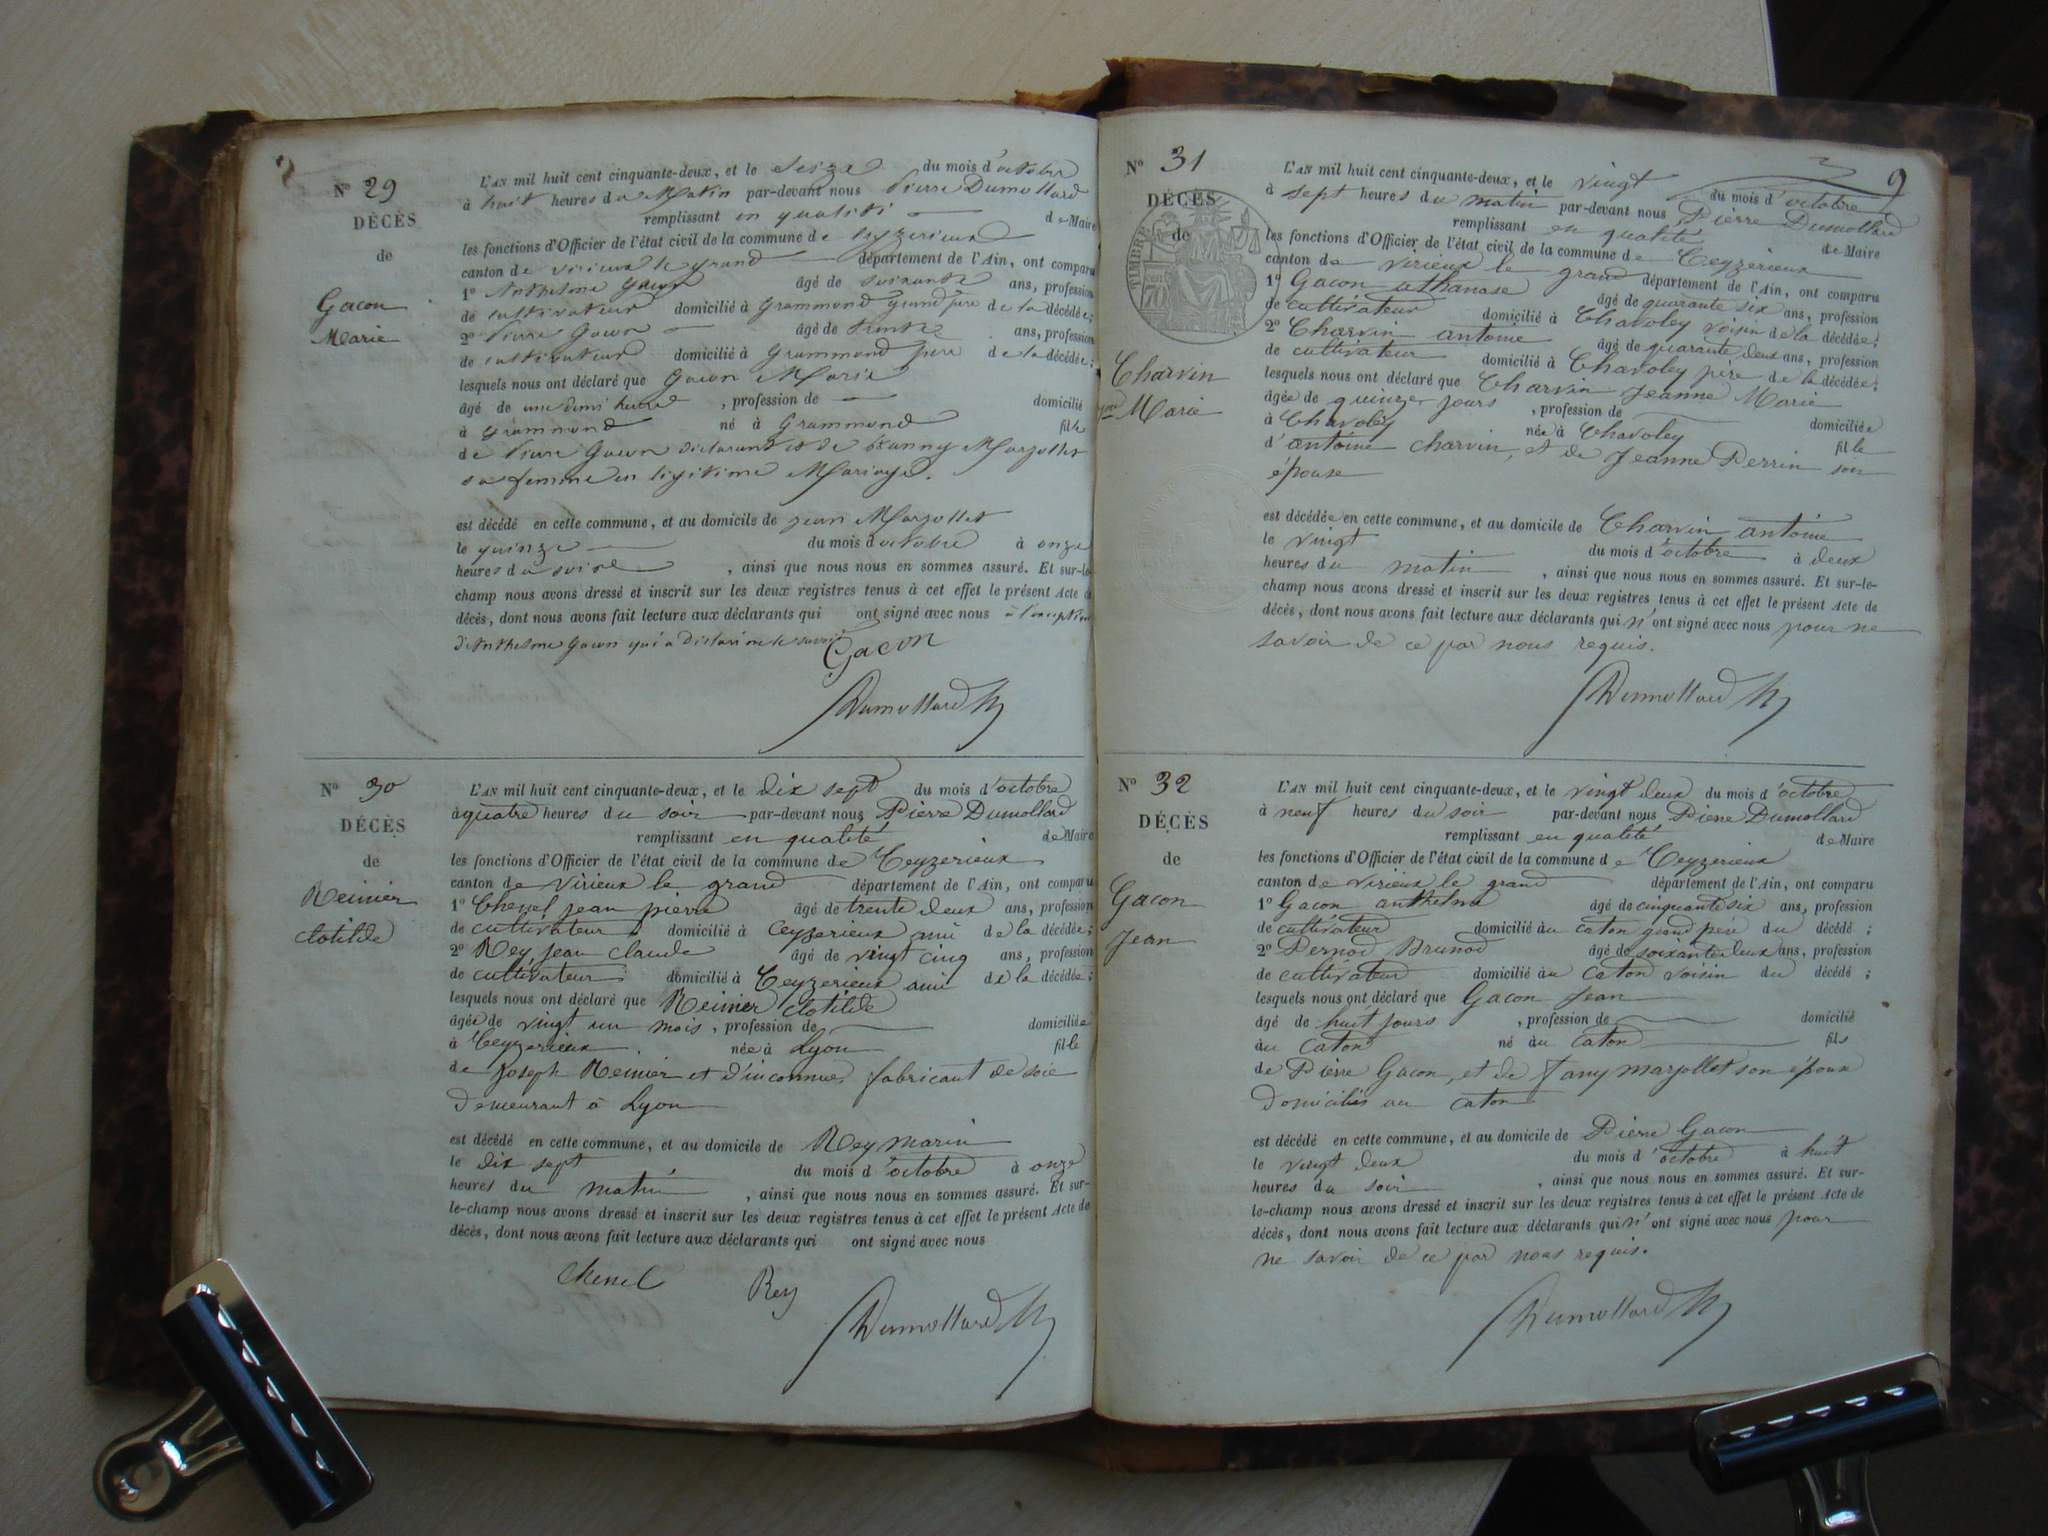 2
N° 29
DÉCÈS
de
Gacon
Marie
L'AN mil huit cent cinquante-deux, et le Seize du mois d'octobre
à huit heures du Matin par-devant nous Pierre Dumollard
remplissant en qualité de Maire
les fonctions d'Officier de l'état civil de la commune de Ceyzerieux
canton de virieux le grand département de l'Ain, ont comparu
1° Anthelme Gacon âgé de soixante ans, profession
de cultivateur domicilié à Grammond Grand père de la décédée;
2° Pierre Gacon âgé de trente ans, profession
de cultivateur domicilié à Grammond père de la décédée;
lesquels nous ont déclaré que Gacon Marie
âgé de une demi heure , profession de domicilié
à Grammond né à Grammond fille
de Pierre Gacon déclarant et de fanny Marjollet
sa femme en légitime Mariage.
est décédé en cette commune, et au domicile de jean Marjollet
le quinze du mois d'octobre à onze
heures du soire , ainsi que nous nous en sommes assuré. Et sur-le-
champ nous avons dressé et inscrit sur les deux registres tenus à cet effet le présent Acte de
décès, dont nous avons fait lecture aux déclarants qui ont signé avec nous à l'exception
d'Anthelme Gacon qui a Déclaré ne le savoir
Gacon
Dumollard
N° 30
DÉCÈS
de
Reinier
clotilde
L'AN mil huit cent cinquante-deux, et le dix sept du mois d'octobre
à quatre heures du soir par-devant nous Pierre Dumollard
remplissant en qualité de Maire
les fonctions d'Officier de l'état civil de la commune de Ceyzerieux
canton de virieux le grand département de l'Ain, ont comparu
1° Chenel jean pierre âgé de trente deux ans, profession
de cultivateur domicilié à Ceyzerieux ami de la décédée;
2° Rey jean claude âgé de vingt cinq ans, profession
de cultivateur domicilié à Ceyzerieux ami de la décédée;
lesquels nous ont déclaré que Reinier clotilde
âgée de vingt un mois , profession de domiciliée
à Ceyzerieux née à Lyon fille
de Joseph Reinier et d'inconnue, fabricant de soie
Demeurant à Lyon
est décédé en cette commune, et au domicile de Rey marin
le dix sept du mois d'octobre à onze
heures du matin , ainsi que nous nous en sommes assuré. Et sur-
le-champ nous avons dressé et inscrit sur les deux registres tenus à cet effet le présent Acte de
décès, dont nous avons fait lecture aux déclarants qui ont signé avec nous
Chenel Rey
Dumollard
9
N° 31
DÉCÈS
de
TIMBRE
70
Charvin
Marie
L'AN mil huit cent cinquante-deux, et le vingt du mois d'octobre
à sept heures du matin par-devant nous Pierre Dumollard
remplissant en qualité de Maire
les fonctions d'Officier de l'état civil de la commune de Ceyzerieux
canton de virieux le grand département de l'Ain, ont comparu
1° Gacon athanase âgé de quarante six ans, profession
de cultivateur domicilié à Chavoley voisin de la décédée;
2° Charvin antoine âgé de quarante deux ans, profession
de cultivateur domicilié à Chavoley père de la décédée;
lesquels nous ont déclaré que Charvin Jeanne Marie
âgée de quinze jours , profession de domiciliée
à Chavoley née à Chavoley fille
d'antoine charvin, et de Jeanne Perrin son
épouse
est décédée en cette commune, et au domicile de Charvin antoine
le vingt du mois d'octobre à deux
heures du matin , ainsi que nous nous en sommes assuré. Et sur-le-
champ nous avons dressé et inscrit sur les deux registres tenus à cet effet le présent Acte de
décès, dont nous avons fait lecture aux déclarants qui n'ont signé avec nous pour ne
savoir de ce par nous requis.
Dumollard
N° 32
DÉCÈS
de
Gacon
Jean
L'AN mil huit cent cinquante-deux, et le vingt deux du mois d'octobre
à neuf heures du soir par-devant nous Pierre Dumollard
remplissant en qualité de Maire
les fonctions d'Officier de l'état civil de la commune de Ceyzerieux
canton de virieux le grand département de l'Ain, ont comparu
1° Gacon anthelme âgé de cinquante six ans, profession
de cultivateur domicilié au caton grand père du décédé ;
2° Pernod Brunod âgé de soixante deux ans, profession
de cultivateur domicilié au caton voisin du décédé ;
lesquels nous ont déclaré que Gacon Jean
âgé de huit jours , profession de domicilié
au caton né au caton fils
de Pierre Gacon, et de fany marjollet son épouse
Domiciliés au caton
est décédé en cette commune, et au domicile de Pierre Gacon
le vingt deux du mois d'octobre à huit
heures du soir , ainsi que nous nous en sommes assuré. Et sur-
le-champ nous avons dressé et inscrit sur les deux registres tenus à cet effet le présent Acte de
décès, dont nous avons fait lecture aux déclarants qui n'ont signé avec nous pour
ne savoir de ce par nous requis.
Dumollard